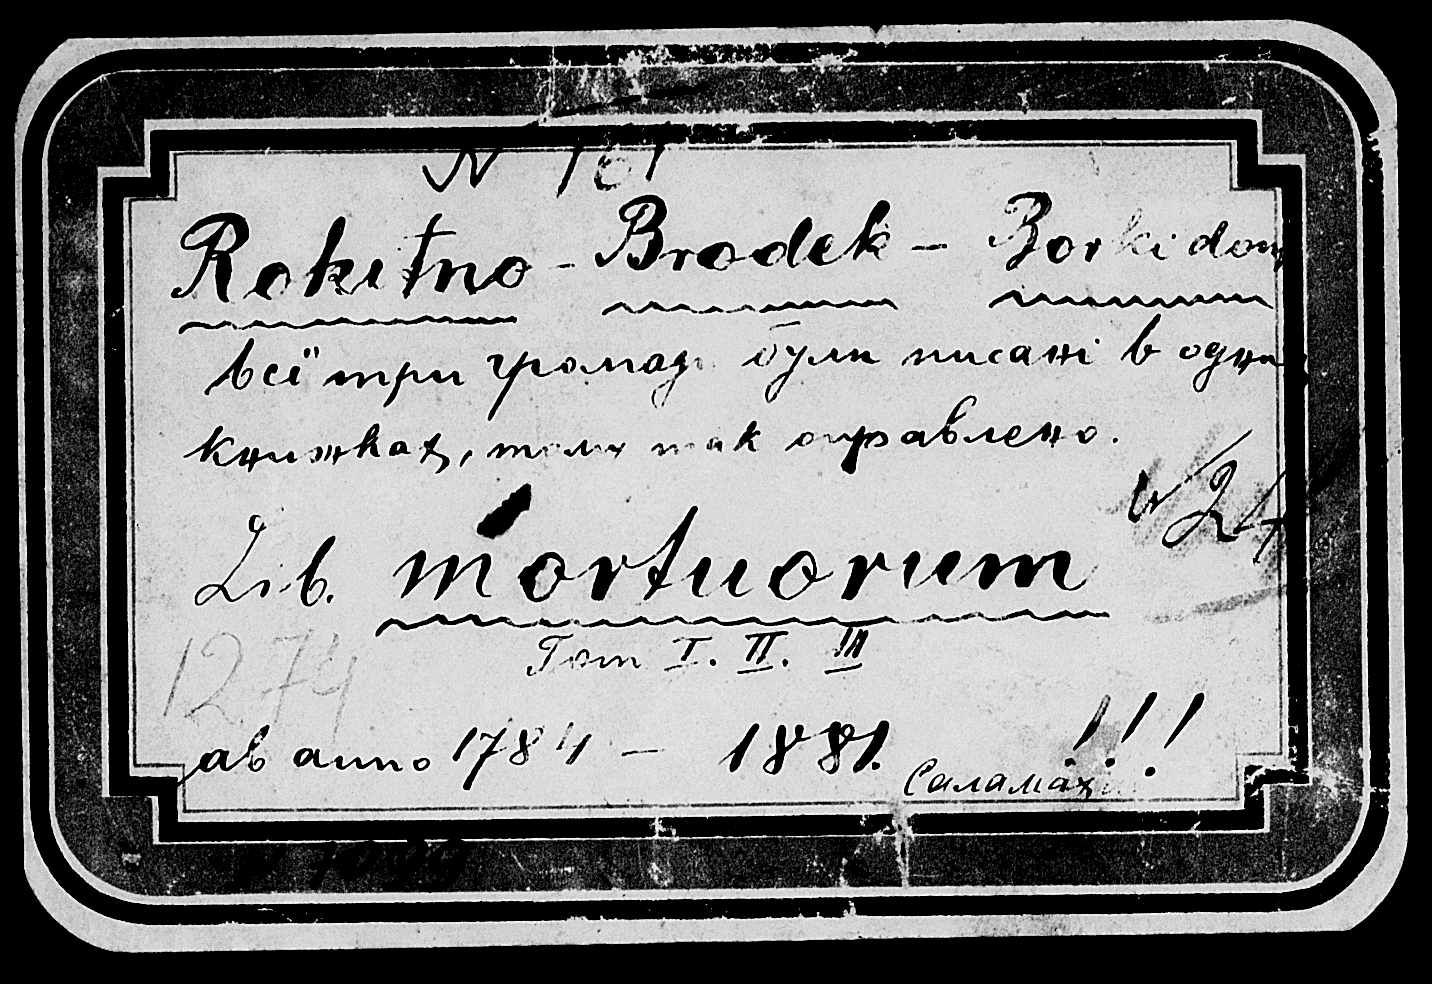 N 101
Rokitno - Brodek - Borki dom
всї три громади були писані в одних
книжках, тому так оправлено.
№ 24
Lib. mortuorum
Том I. II. III
1274
ab anno 1784 - 1881. !!!
Саламаха